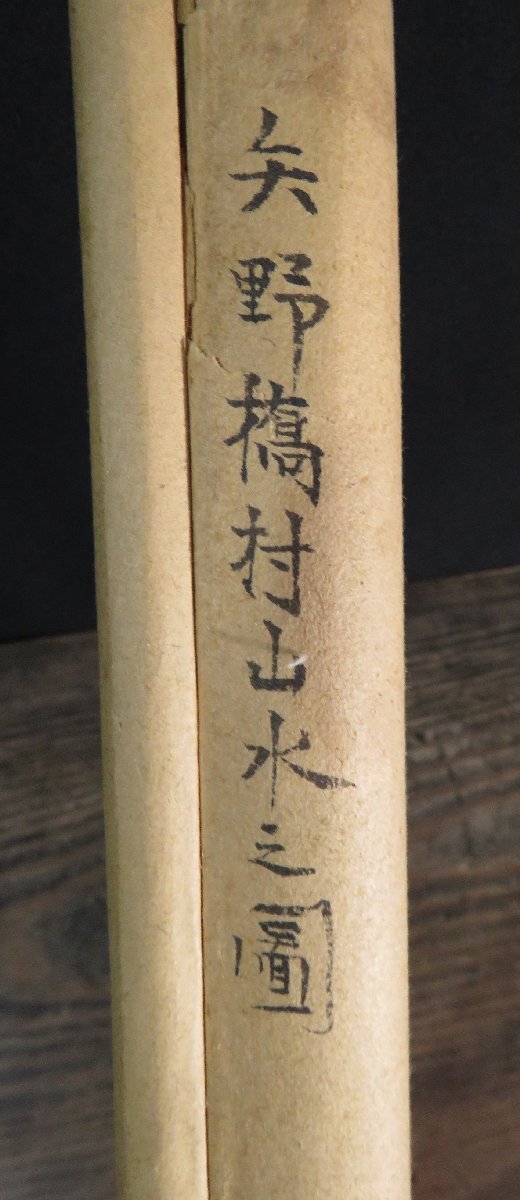 矢野橋村山水之圖